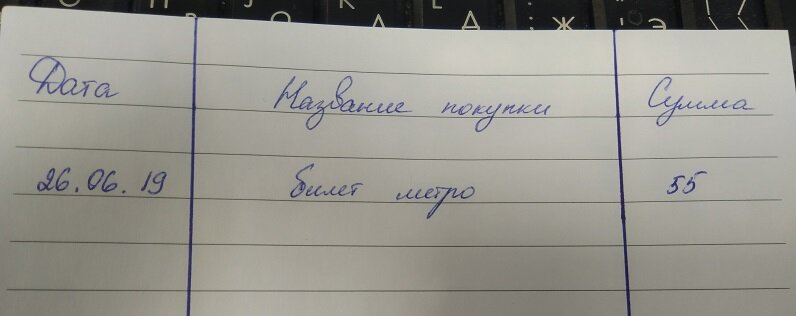 Дата Название покупки Сумма
26.06.19 билет метро 55